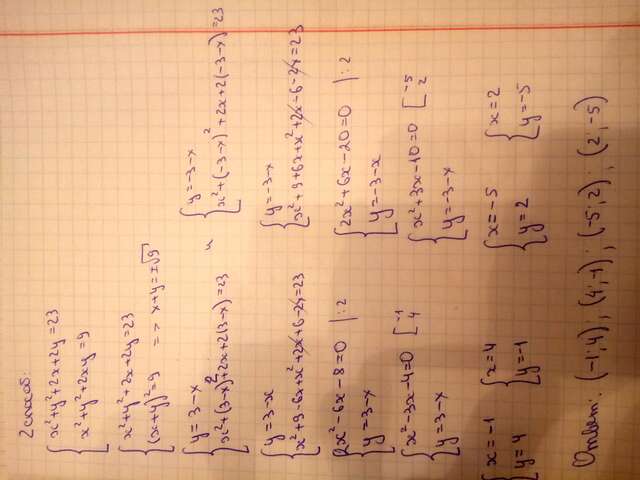 2 способ:
{x²+y²+2x+2y=23
x²+y²+2xy=9
{x²+y²+2x+2y=23
(x+y)²=9 => x+y=±√9
{y=3-x
x²+(3-x)²+2x+2(3-x)=23
и
{y=-3-x
x²+(-3-x)²+2x+2(-3-x)=23
{y=3-x
x²+9-6x+x²+2x+6-2x=23
{y=-3-x
x²+9+6x+x²+2x-6-2x=23
{2x²-6x-8=0 |:2
y=3-x
{2x²+6x-20=0 |:2
y=-3-x
{x²-3x-4=0 [-1
4
y=3-x
{x²+3x-10=0 [-5
2
y=-3-x
{x=-1
y=4
{x=4
y=-1
{x=-5
y=2
{x=2
y=-5
Ответ: (-1;4); (4;-1); (-5;2); (2;-5)